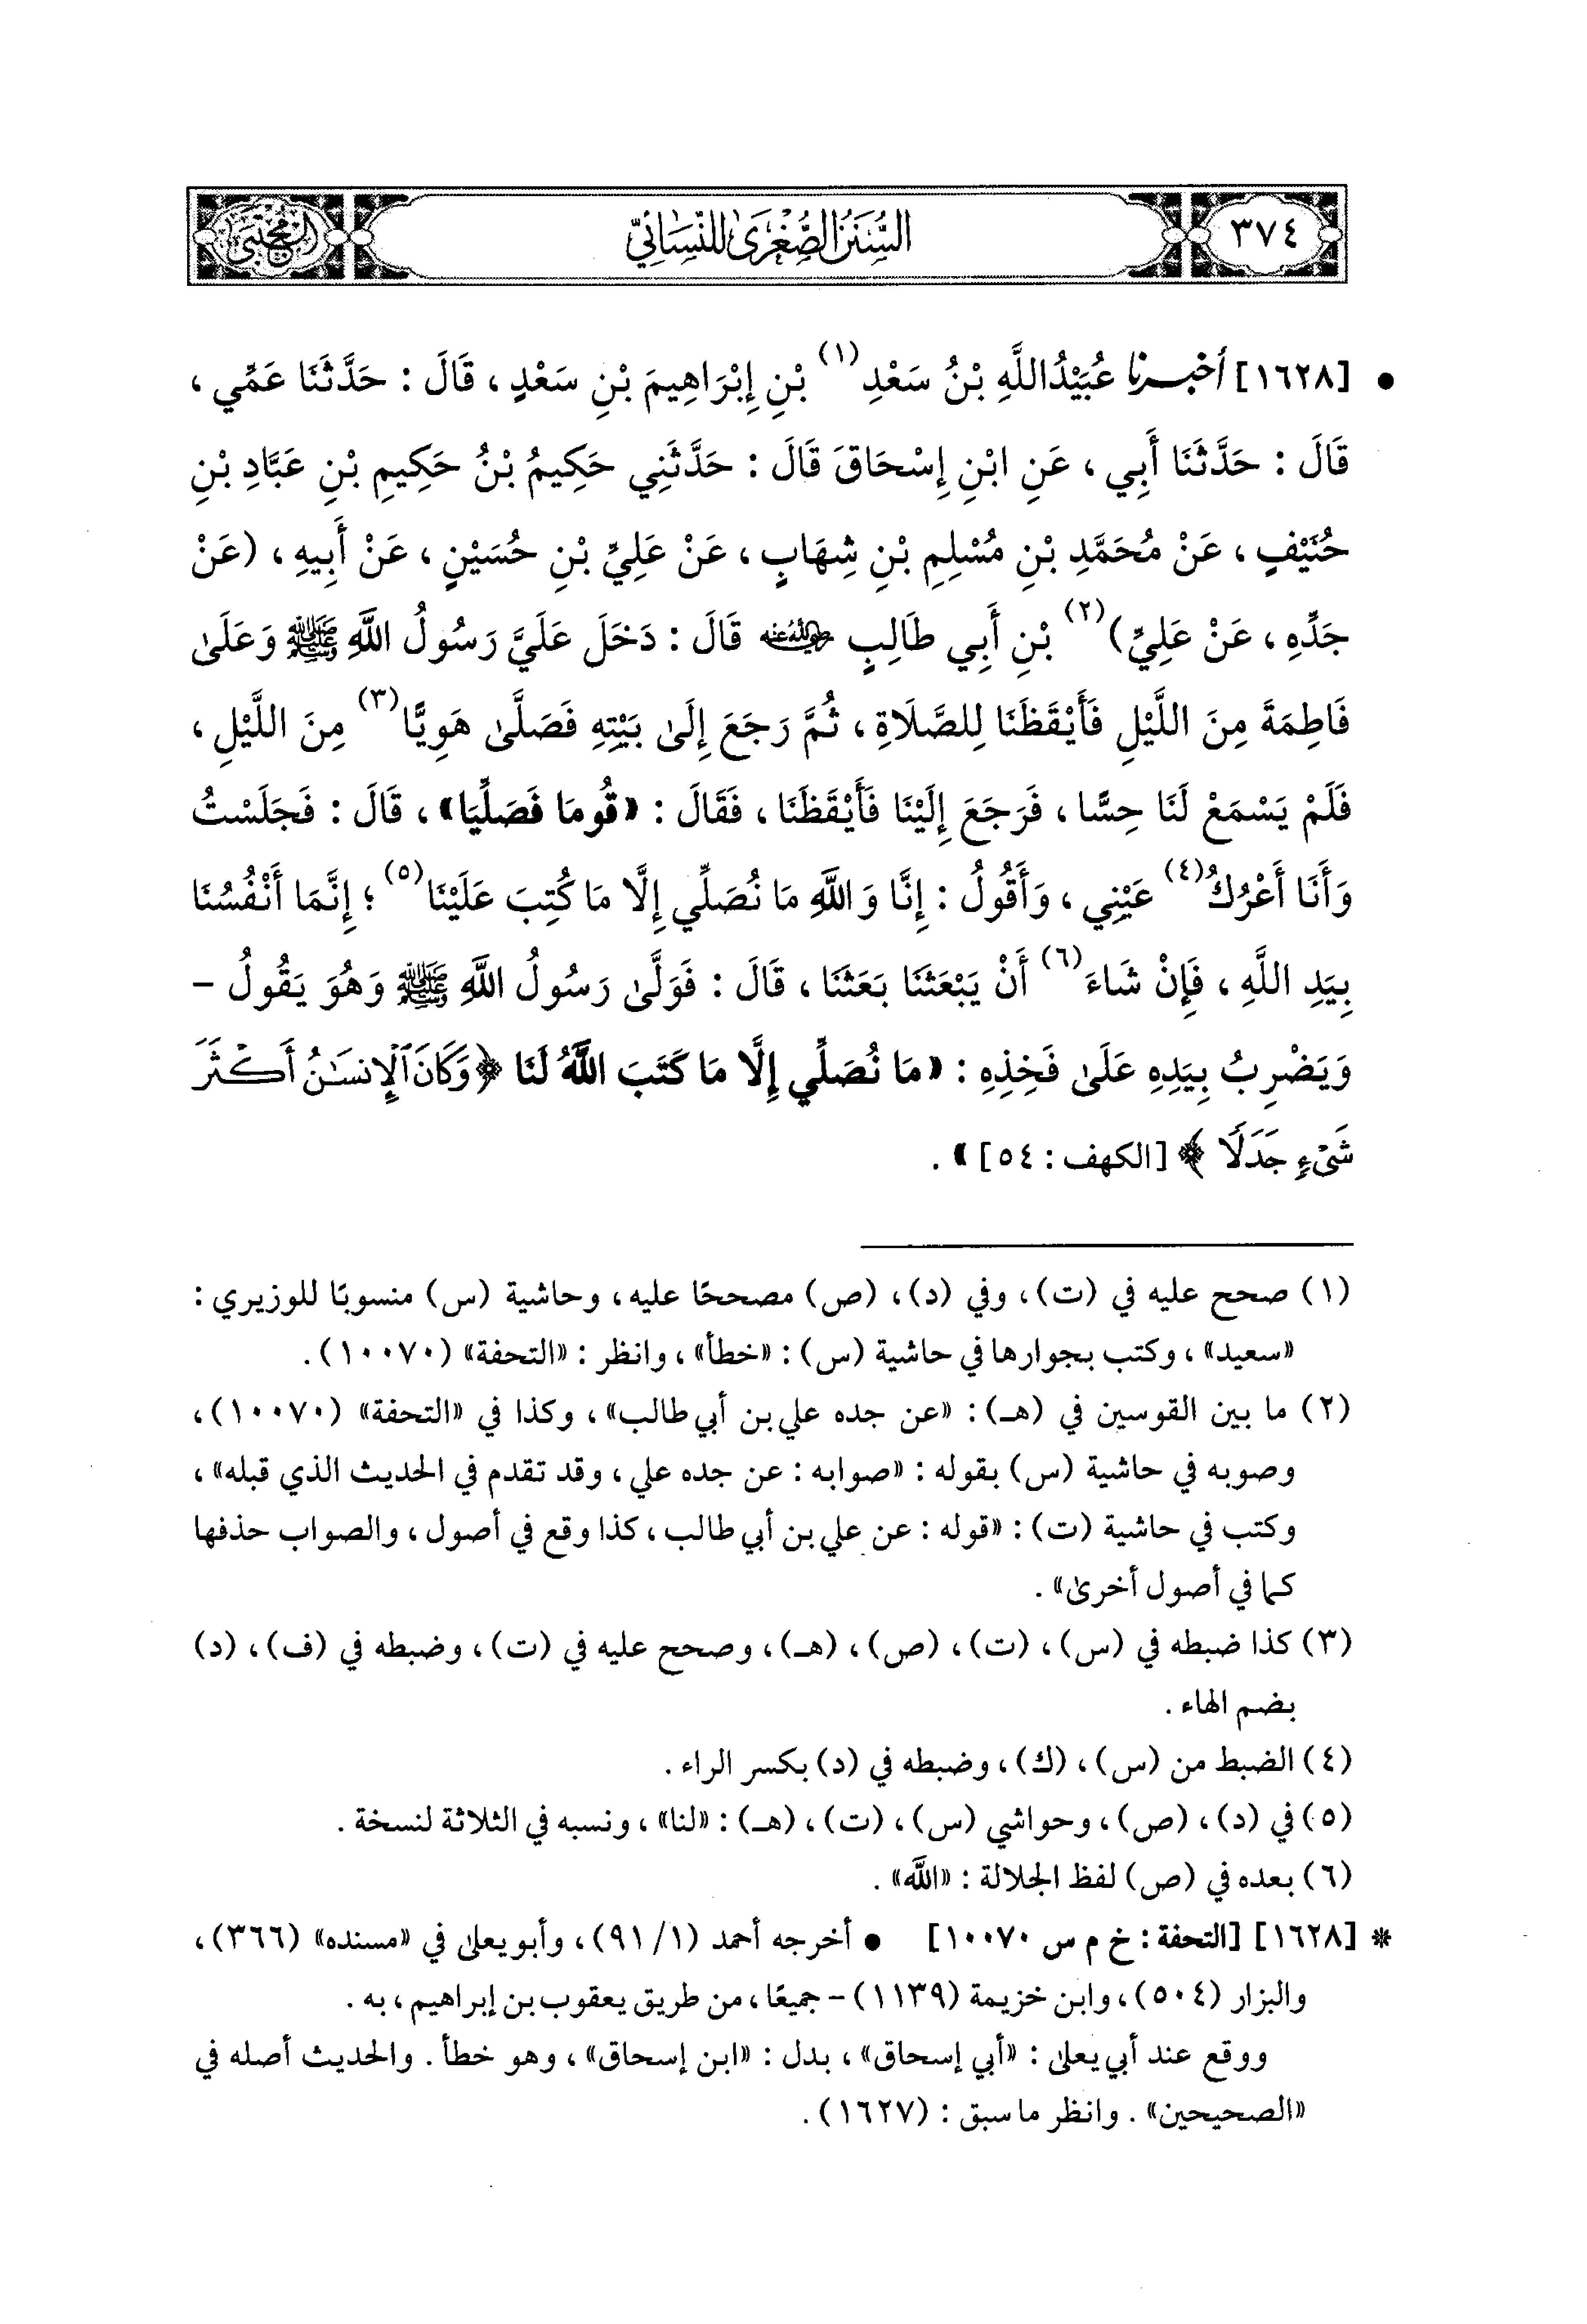 ٣٧٤
السُّنَنُ الصُّغْرَىٰ لِلنَّسَائِيّ
المجتبى
• [١٦٢٨] أخبرنا عُبَيْدُاللَّهِ بْنُ سَعْدِ(١) بْنِ إِبْرَاهِيمَ بْنِ سَعْدٍ ، قَالَ : حَدَّثَنَا عَمِّي ،
قَالَ : حَدَّثَنَا أَبِي ، عَنِ ابْنِ إِسْحَاقَ قَالَ : حَدَّثَنِي حَكِيمُ بْنُ حَكِيمِ بْنِ عَبَّادِ بْنِ
حُنَيْفٍ ، عَنْ مُحَمَّدِ بْنِ مُسْلِمِ بْنِ شِهَابٍ ، عَنْ عَلِيِّ بْنِ حُسَيْنٍ ، عَنْ أَبِيهِ ، (عَنْ
جَدِّهِ ، عَنْ عَلِيِّ)(٢) بْنِ أَبِي طَالِبٍ رضي الله عنه قَالَ : دَخَلَ عَلَيَّ رَسُولُ اللَّهِ ﷺ وَعَلَىٰ
فَاطِمَةَ مِنَ اللَّيْلِ فَأَيْقَظَنَا لِلصَّلَاةِ ، ثُمَّ رَجَعَ إِلَىٰ بَيْتِهِ فَصَلَّىٰ هَوِيًّا(٣) مِنَ اللَّيْلِ ،
فَلَمْ يَسْمَعْ لَنَا حِسًّا ، فَرَجَعَ إِلَيْنَا فَأَيْقَظَنَا ، فَقَالَ : «قُومَا فَصَلِّيَا» ، قَالَ : فَجَلَسْتُ
وَأَنَا أَعْرُكُ(٤) عَيْنِي ، وَأَقُولُ : إِنَّا وَاللَّهِ مَا نُصَلِّي إِلَّا مَا كُتِبَ عَلَيْنَا(٥) ؛ إِنَّمَا أَنْفُسُنَا
بِيَدِ اللَّهِ ، فَإِنْ شَاءَ(٦) أَنْ يَبْعَثَنَا بَعَثَنَا ، قَالَ : فَوَلَّىٰ رَسُولُ اللَّهِ ﷺ وَهُوَ يَقُولُ -
وَيَضْرِبُ بِيَدِهِ عَلَىٰ فَخِذِهِ : «مَا نُصَلِّي إِلَّا مَا كَتَبَ اللَّهُ لَنَا ﴿وَكَانَ ٱلْإِنسَـٰنُ أَكْثَرَ
شَىْءٍ جَدَلًا ﴾ [الكهف : ٥٤]» .
(١) صحح عليه في (ت)، وفي (د)، (ص) مصححًا عليه، وحاشية (س) منسوبًا للوزيري :
«سعيد» ، وكتب بجوارها في حاشية (س) : «خطأ» ، وانظر : «التحفة» (١٠٠٧٠).
(٢) ما بين القوسين في (هـ) : «عن جده علي بن أبي طالب» ، وكذا في «التحفة» (١٠٠٧٠) ،
وصوبه في حاشية (س) بقوله : «صوابه : عن جده علي ، وقد تقدم في الحديث الذي قبله» ،
وكتب في حاشية (ت) : «قوله : عن علي بن أبي طالب ، كذا وقع في أصول ، والصواب حذفها
كما في أصول أخرىٰ» .
(٣) كذا ضبطه في (س) ، (ت) ، (ص) ، (هـ) ، وصحح عليه في (ت) ، وضبطه في (ف) ، (د)
بضم الهاء .
(٤) الضبط من (س) ، (ك) ، وضبطه في (د) بكسر الراء .
(٥) في (د) ، (ص) ، وحواشي (س) ، (ت) ، (هـ) : «لنا» ، ونسبه في الثلاثة لنسخة .
(٦) بعده في (ص) لفظ الجلالة : «اللَّه» .
* [١٦٢٨] [التحفة : خ م س ١٠٠٧٠] • أخرجه أحمد (١/ ٩١) ، وأبو يعلىٰ في «مسنده» (٣٦٦) ،
والبزار (٥٠٤) ، وابن خزيمة (١١٣٩) - جميعًا ، من طريق يعقوب بن إبراهيم ، به .
ووقع عند أبي يعلىٰ : «أبي إسحاق» ، بدل : «ابن إسحاق» ، وهو خطأ . والحديث أصله في
«الصحيحين» . وانظر ما سبق : (١٦٢٧) .